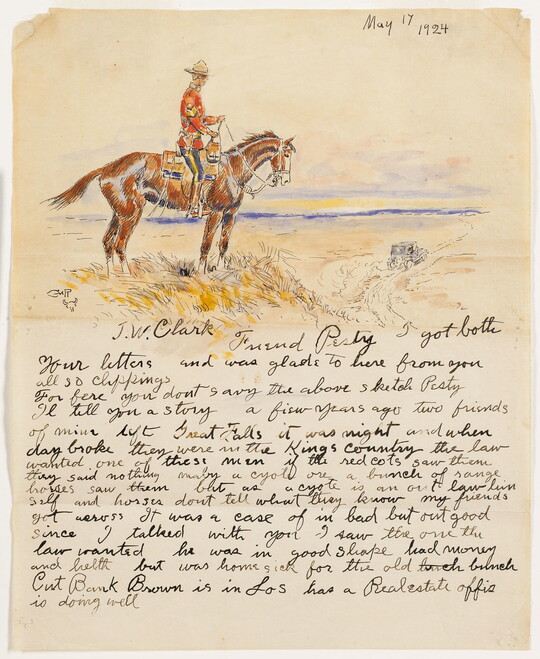 May 17 1924
CMR
J.W. Clark Friend Pesty I got both
Your letters and was glade to here from you
all so clippings
For fere you dont savy the above sketch Pesty
Il tell you a story a fiew years ago two friends
of mine left Great Falls it was night and when
day broke they were in the Kings country the law
wanted one of these men if the red cots saw them
they said nothing maby a cyote ore a bunch of range
horses saw them but as a cyote is an out law him
self and horses dont tell what they know my friends
got across It was a case of in bad but out good
since I talked with you I saw the one the
law wanted he was in good shape had money
and helth but was home sick for the old bunch
Cut Bank Brown is in Los has a Realestate offis
is doing well